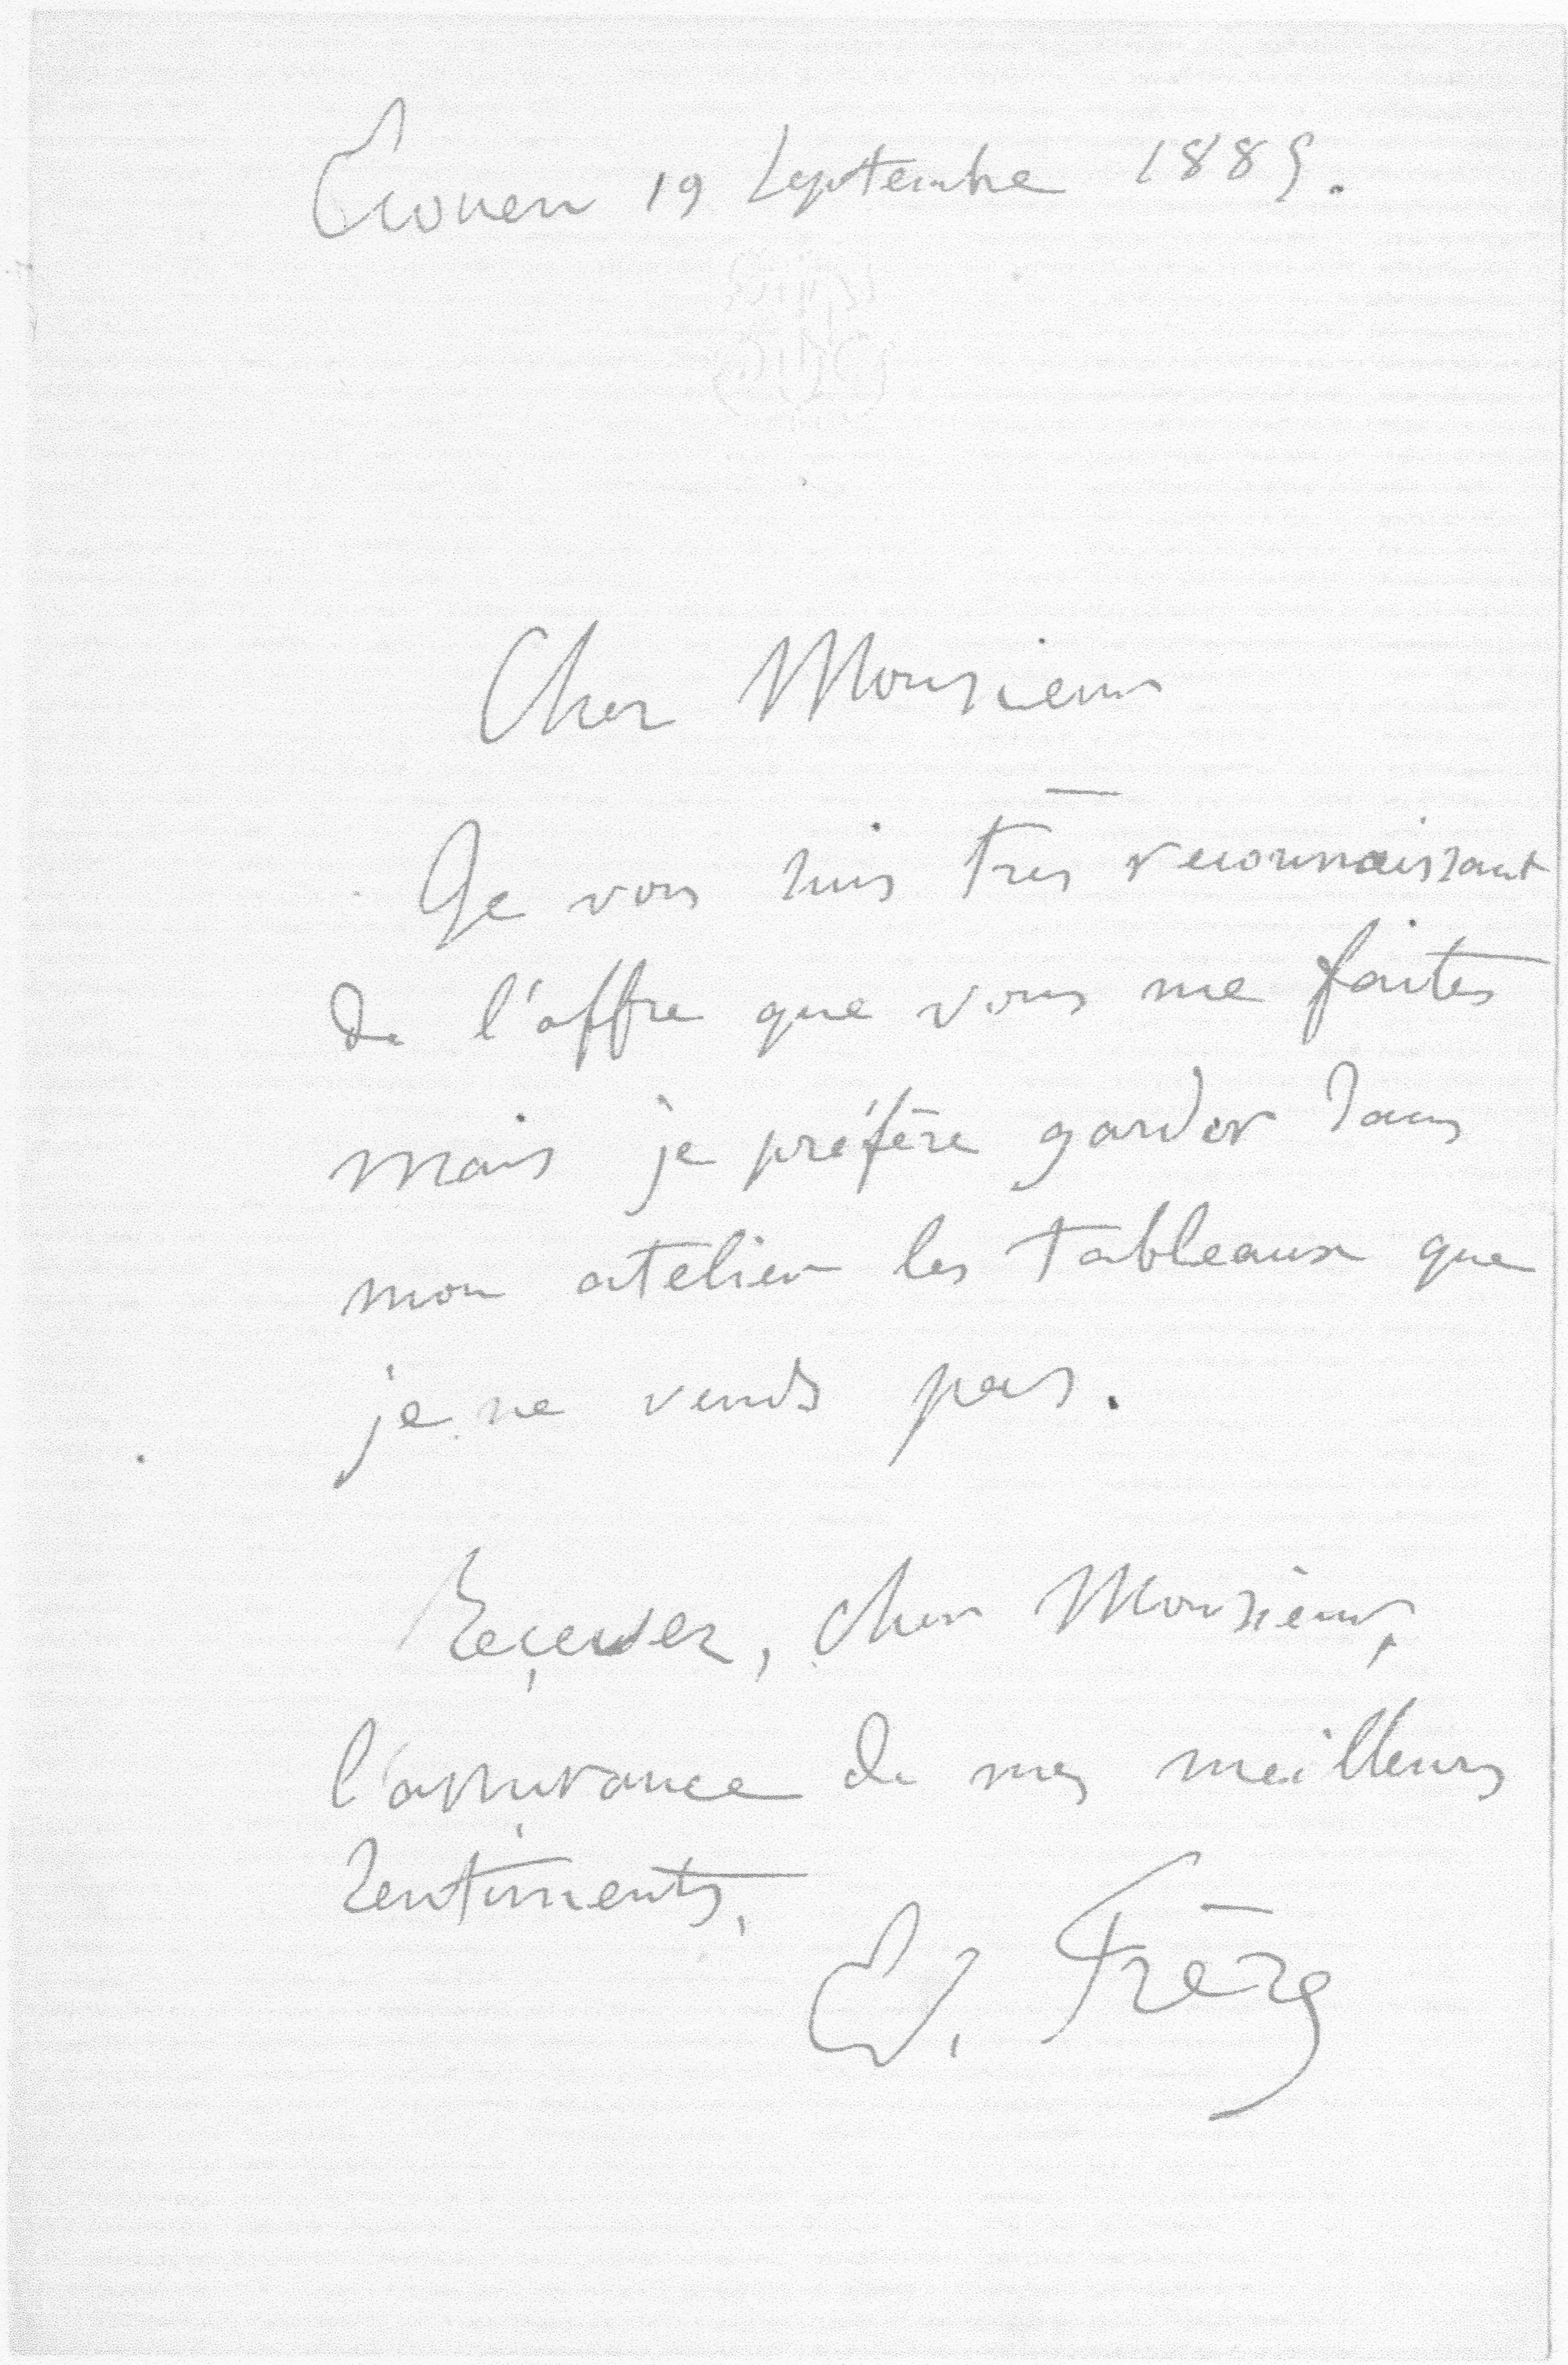 Écouen 19 Septembre 1885.
Cher Monsieur
Je vous suis très reconnaissant
de l'offre que vous me faites
mais je préfère garder dans
mon atelier les tableaux que
je ne vends pas.
Reçevez, cher Monsieur,
l'assurance de mes meilleurs
sentiments,
Ed. Frère